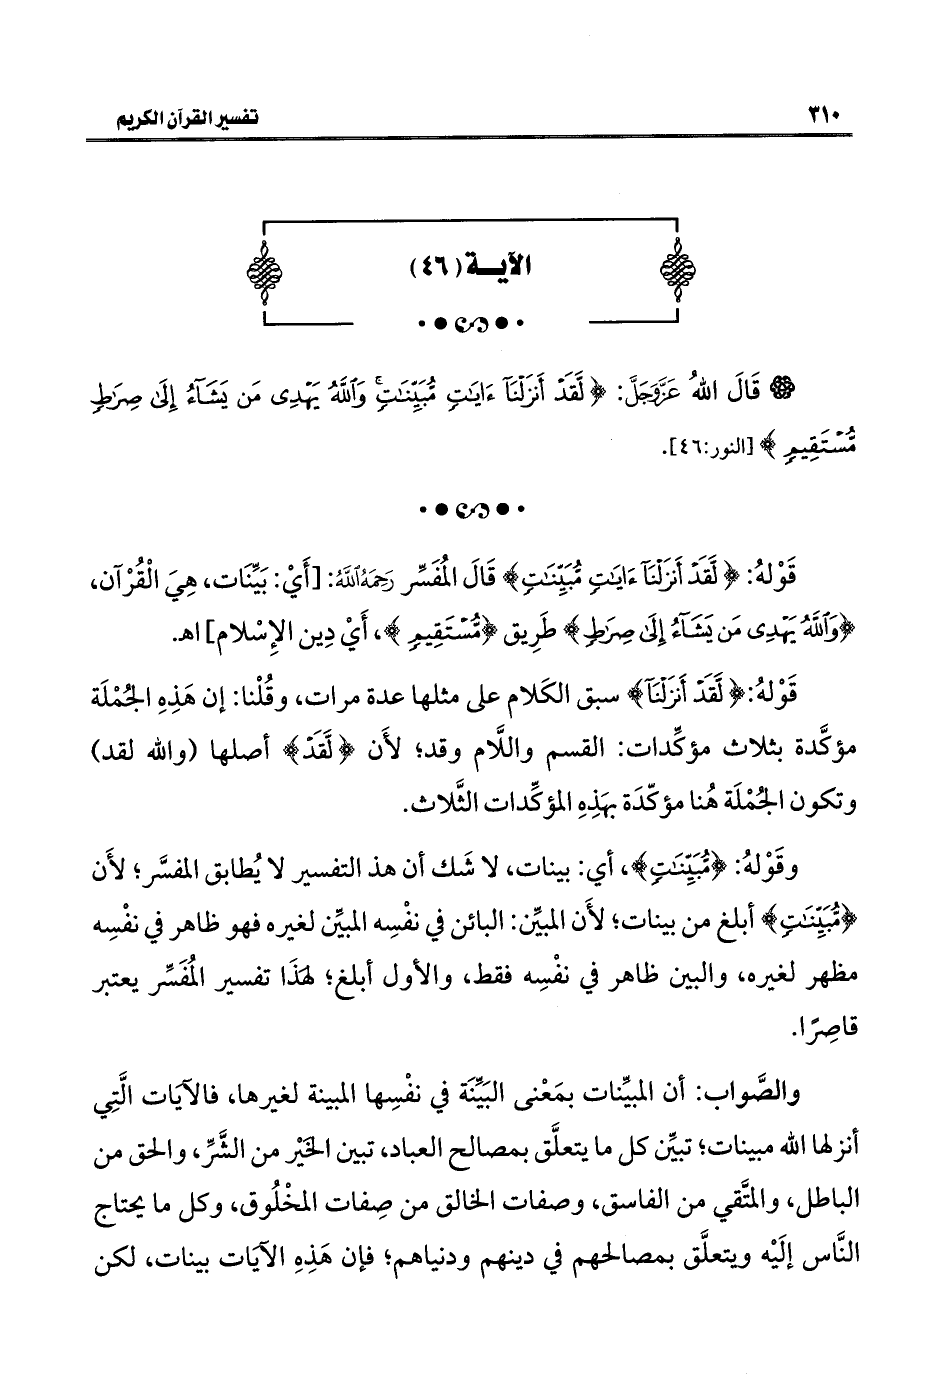 ٣١٠
تفسير القرآن الكريم
الآيـــة (٤٦)
قَالَ اللهُ عَزَّوَجَلَّ: ﴿ لَّقَدْ أَنزَلْنَآ ءَايَٰتٍ مُّبَيِّنَٰتٍۚ وَٱللَّهُ يَهْدِى مَن يَشَآءُ إِلَىٰ صِرَٰطٍ
مُّسْتَقِيمٍ ﴾ [النور:٤٦].
قَوْلهُ: ﴿ لَّقَدْ أَنزَلْنَآ ءَايَٰتٍ مُّبَيِّنَٰتٍ﴾ قَالَ المُفَسِّر رَحِمَهُ ٱللَّهُ: [أَيْ: بَيِّنَات، هِيَ الْقُرْآن،
﴿وَٱللَّهُ يَهْدِى مَن يَشَآءُ إِلَىٰ صِرَٰطٍ﴾ طَرِيق ﴿مُّسْتَقِيمٍ ﴾، أَيْ دِين الإِسْلام] اهـ.
قَوْلهُ:﴿ لَّقَدْ أَنزَلْنَآ﴾ سبق الكَلام على مثلها عدة مرات، وقُلْنا: إن هَذِهِ الجُمْلَة
مؤكَّدة بثلاث مؤكِّدات: القسم واللَّام وقد؛ لأَن ﴿ لَّقَدْ﴾ أصلها (والله لقد)
وتكون الجُمْلَة هُنا مؤكّدَة بهَذِهِ المؤكِّدات الثَّلاث.
وقَوْلهُ: ﴿مُّبَيِّنَٰتٍ﴾، أي: بينات، لا شَك أن هذ التفسير لا يُطابق المفسَّر؛ لأَن
﴿مُّبَيِّنَٰتٍ﴾ أبلغ من بينات؛ لأَن المبيِّن: البائن في نفْسِه المبيِّن لغيره فهو ظاهر في نفْسِه
مظهر لغيره، والبين ظاهر في نفْسِه فقط، والأول أبلغ؛ لهَذَا تفسير المُفَسِّر يعتبر
قاصِرًا.
والصَّواب: أن المبيِّنات بمَعْنى البَيِّنَة في نفْسِها المبينة لغيرها، فالآيَات الَّتِي
أنزلها الله مبينات؛ تبيِّن كل ما يتعلَّق بمصالح العباد، تبين الخَيْر من الشَّرِّ، والحق من
الباطل، والمتَّقي من الفاسق، وصفات الخالق من صِفات المخْلُوق، وكل ما يحتاج
النَّاس إلَيْه ويتعلَّق بمصالحهم في دينهم ودنياهم؛ فإن هَذِهِ الآيَات بينات، لكن